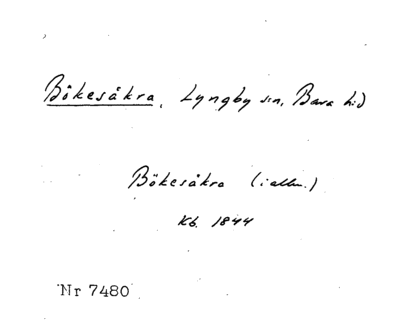 Bökesåkra, Lyngby sn, Bara hd
Bökesåkra (i allm.)
Kb. 1844
Nr 7480